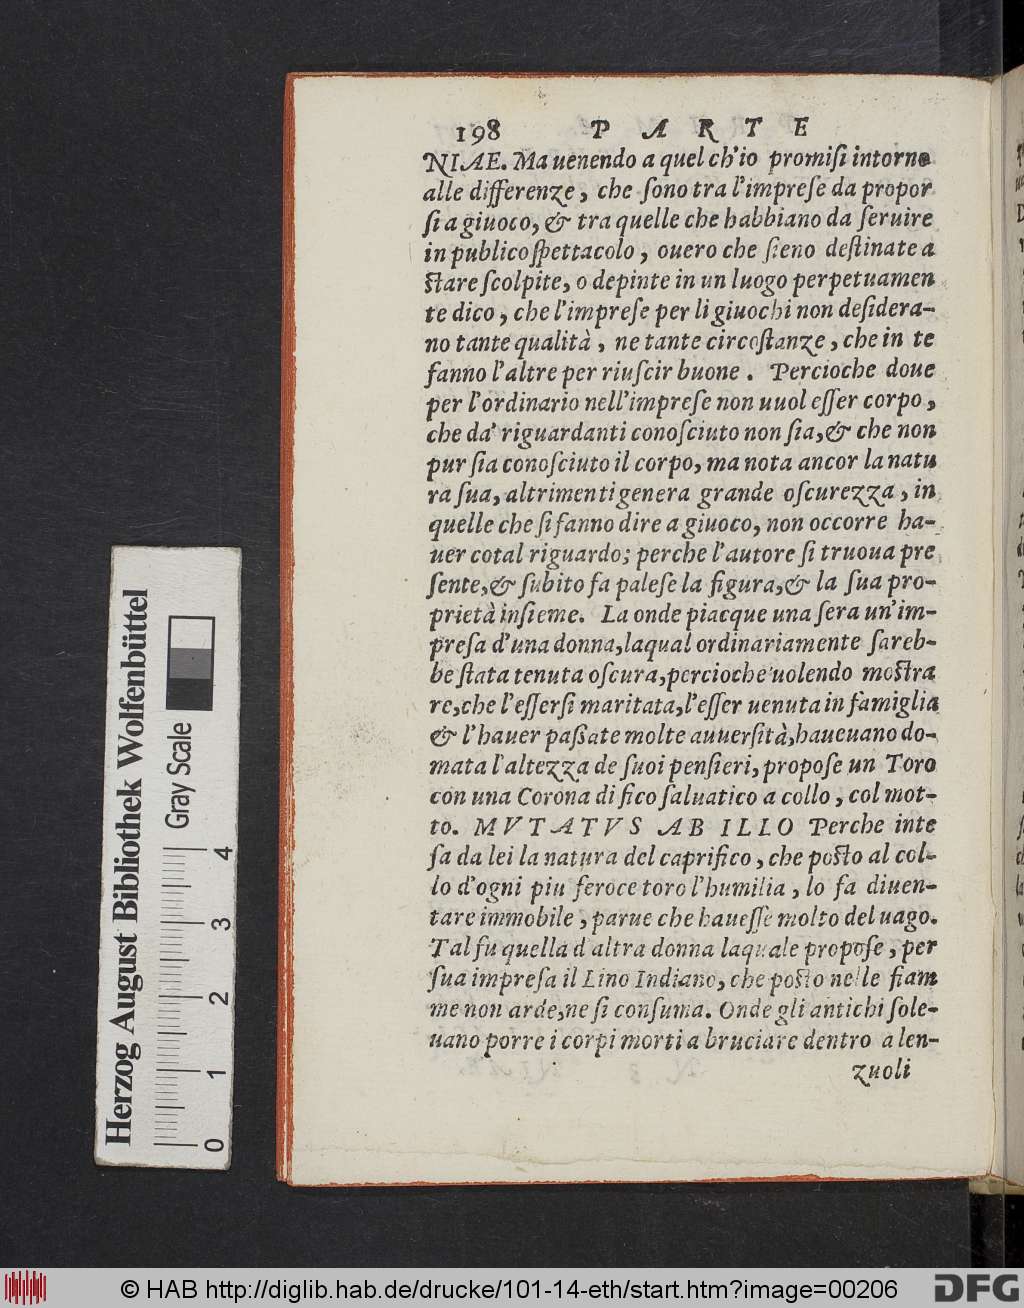 198 PARTE
NIAE. Ma uenendo a quel ch'io promiſi intorno
alle differenze, che ſono tra l'impreſe da propor
ſi a giuoco, & tra quelle che habbiano da ſeruire
in publico ſpettacolo, ouero che ſieno deſtinate a
ſtare ſcolpite, o depinte in un luogo perpetuamen
te dico, che l'impreſe per li giuochi non deſidera-
no tante qualità, ne tante circoſtanze, che in te
fanno l'altre per riuſcir buone. Percioche doue
per l'ordinario nell'impreſe non uuol eſſer corpo,
che da' riguardanti conoſciuto non ſia, & che non
pur ſia conoſciuto il corpo, ma nota ancor la natu
ra ſua, altrimenti genera grande oſcurezza, in
quelle che ſi fanno dire a giuoco, non occorre ha-
uer cotal riguardo; perche l'autore ſi truoua pre
ſente, & ſubito fa paleſe la figura, & la ſua pro-
prietà inſieme. La onde piacque una ſera un'im-
preſa d'una donna, laqual ordinariamente ſareb-
be ſtata tenuta oſcura, percioche uolendo moſtra
re, che l'eſſerſi maritata, l'eſſer uenuta in famiglia
& l'hauer paſſate molte auuerſità, haueuano do-
mata l'altezza de ſuoi penſieri, propoſe un Toro
con una Corona di fico ſaluatico a collo, col mot-
to. MVTATVS AB ILLO Perche inte
ſa da lei la natura del caprifico, che poſto al col-
lo d'ogni piu feroce toro l'humilia, lo fa diuen-
tare immobile, parue che haueſſe molto del uago.
Tal fu quella d'altra donna laquale propoſe, per
ſua impreſa il Lino Indiano, che poſto nelle fiam
me non arde, ne ſi conſuma. Onde gli antichi ſole-
uano porre i corpi morti a bruciare dentro a len-
zuoli
Herzog August Bibliothek Wolfenbüttel
Gray Scale
0 1 2 3 4
© HAB http://diglib.hab.de/drucke/101-14-eth/start.htm?image=00206
DFG